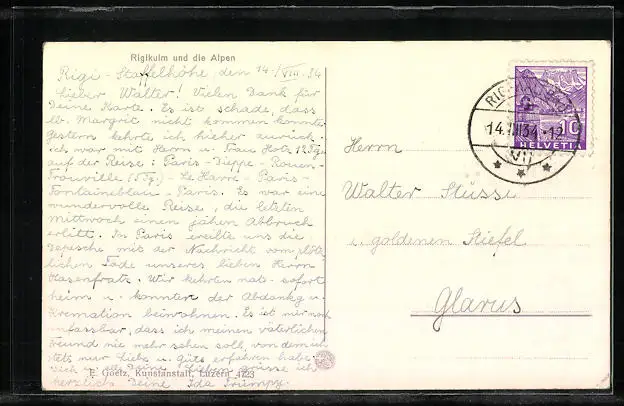 Rigikulm und die Alpen
Rigi-Staffelhöhe, den 14./VIII. 34
Lieber Walter! Vielen Dank für
Deine Karte. Es ist schade, dass
lb. Margrit nicht kommen konnte.
Gestern kehrte ich hieher zurück.
Ich war mit Herrn u. Frau Hotz 12 Tge
auf der Reise: Paris-Dieppe-Rouen-
Trouville (5 Tg.) - Le Havre-Paris-
Fontainebleau-Paris. Es war eine
wundervolle Reise, die letzten
Mittwoch einen jähen Abbruch
erlitt. In Paris ereilte uns die
Depesche mit der Nachricht vom plötz-
lichen Tode unseres lieben Herrn
Hasenfratz. Wir kehrten nat. sofort
heim u. konnten der Abdankg u.
Kremation beiwohnen. Es ist mir noch
unfassbar, dass ich meinen väterlichen
Freund nie mehr sehen soll, von dem ich
stets nur Liebs u. Guts erfahren habe.
Dich u. alle Deine Lieben grüsse ich
herzlich Deine Ida Trümpy.
E. Goetz, Kunstanstalt, Luzern 4723
14.VIII.34.-12
VII
10
HELVETIA
Herrn
Walter Stüssi
z. goldenen Stiefel
Glarus